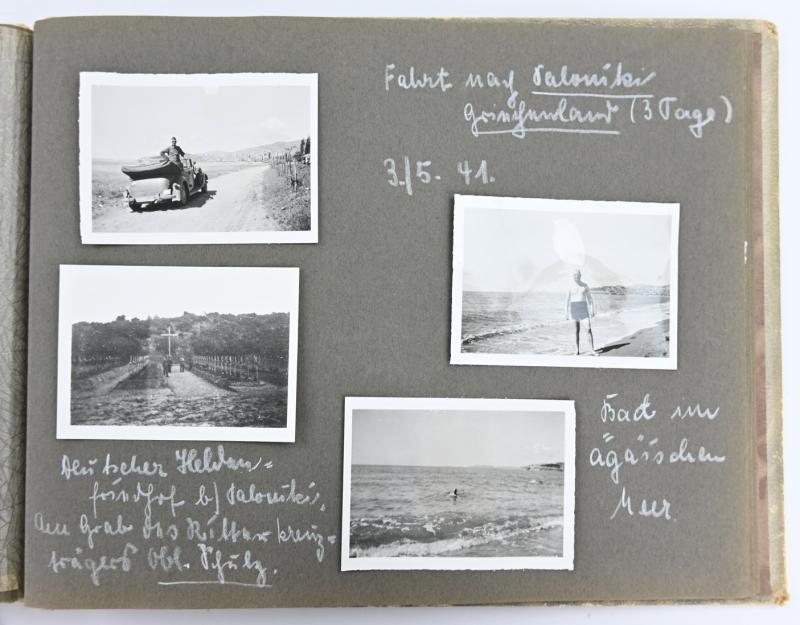 Fahrt nach Saloniki
Griechenland (3 Tage)
3./5. 41.
Bad im
ägäischen
Meer.
Deutscher Helden=
friedhof b/ Saloniki.
Am Grab des Ritterkreuz=
trägers Obl. Schulz.